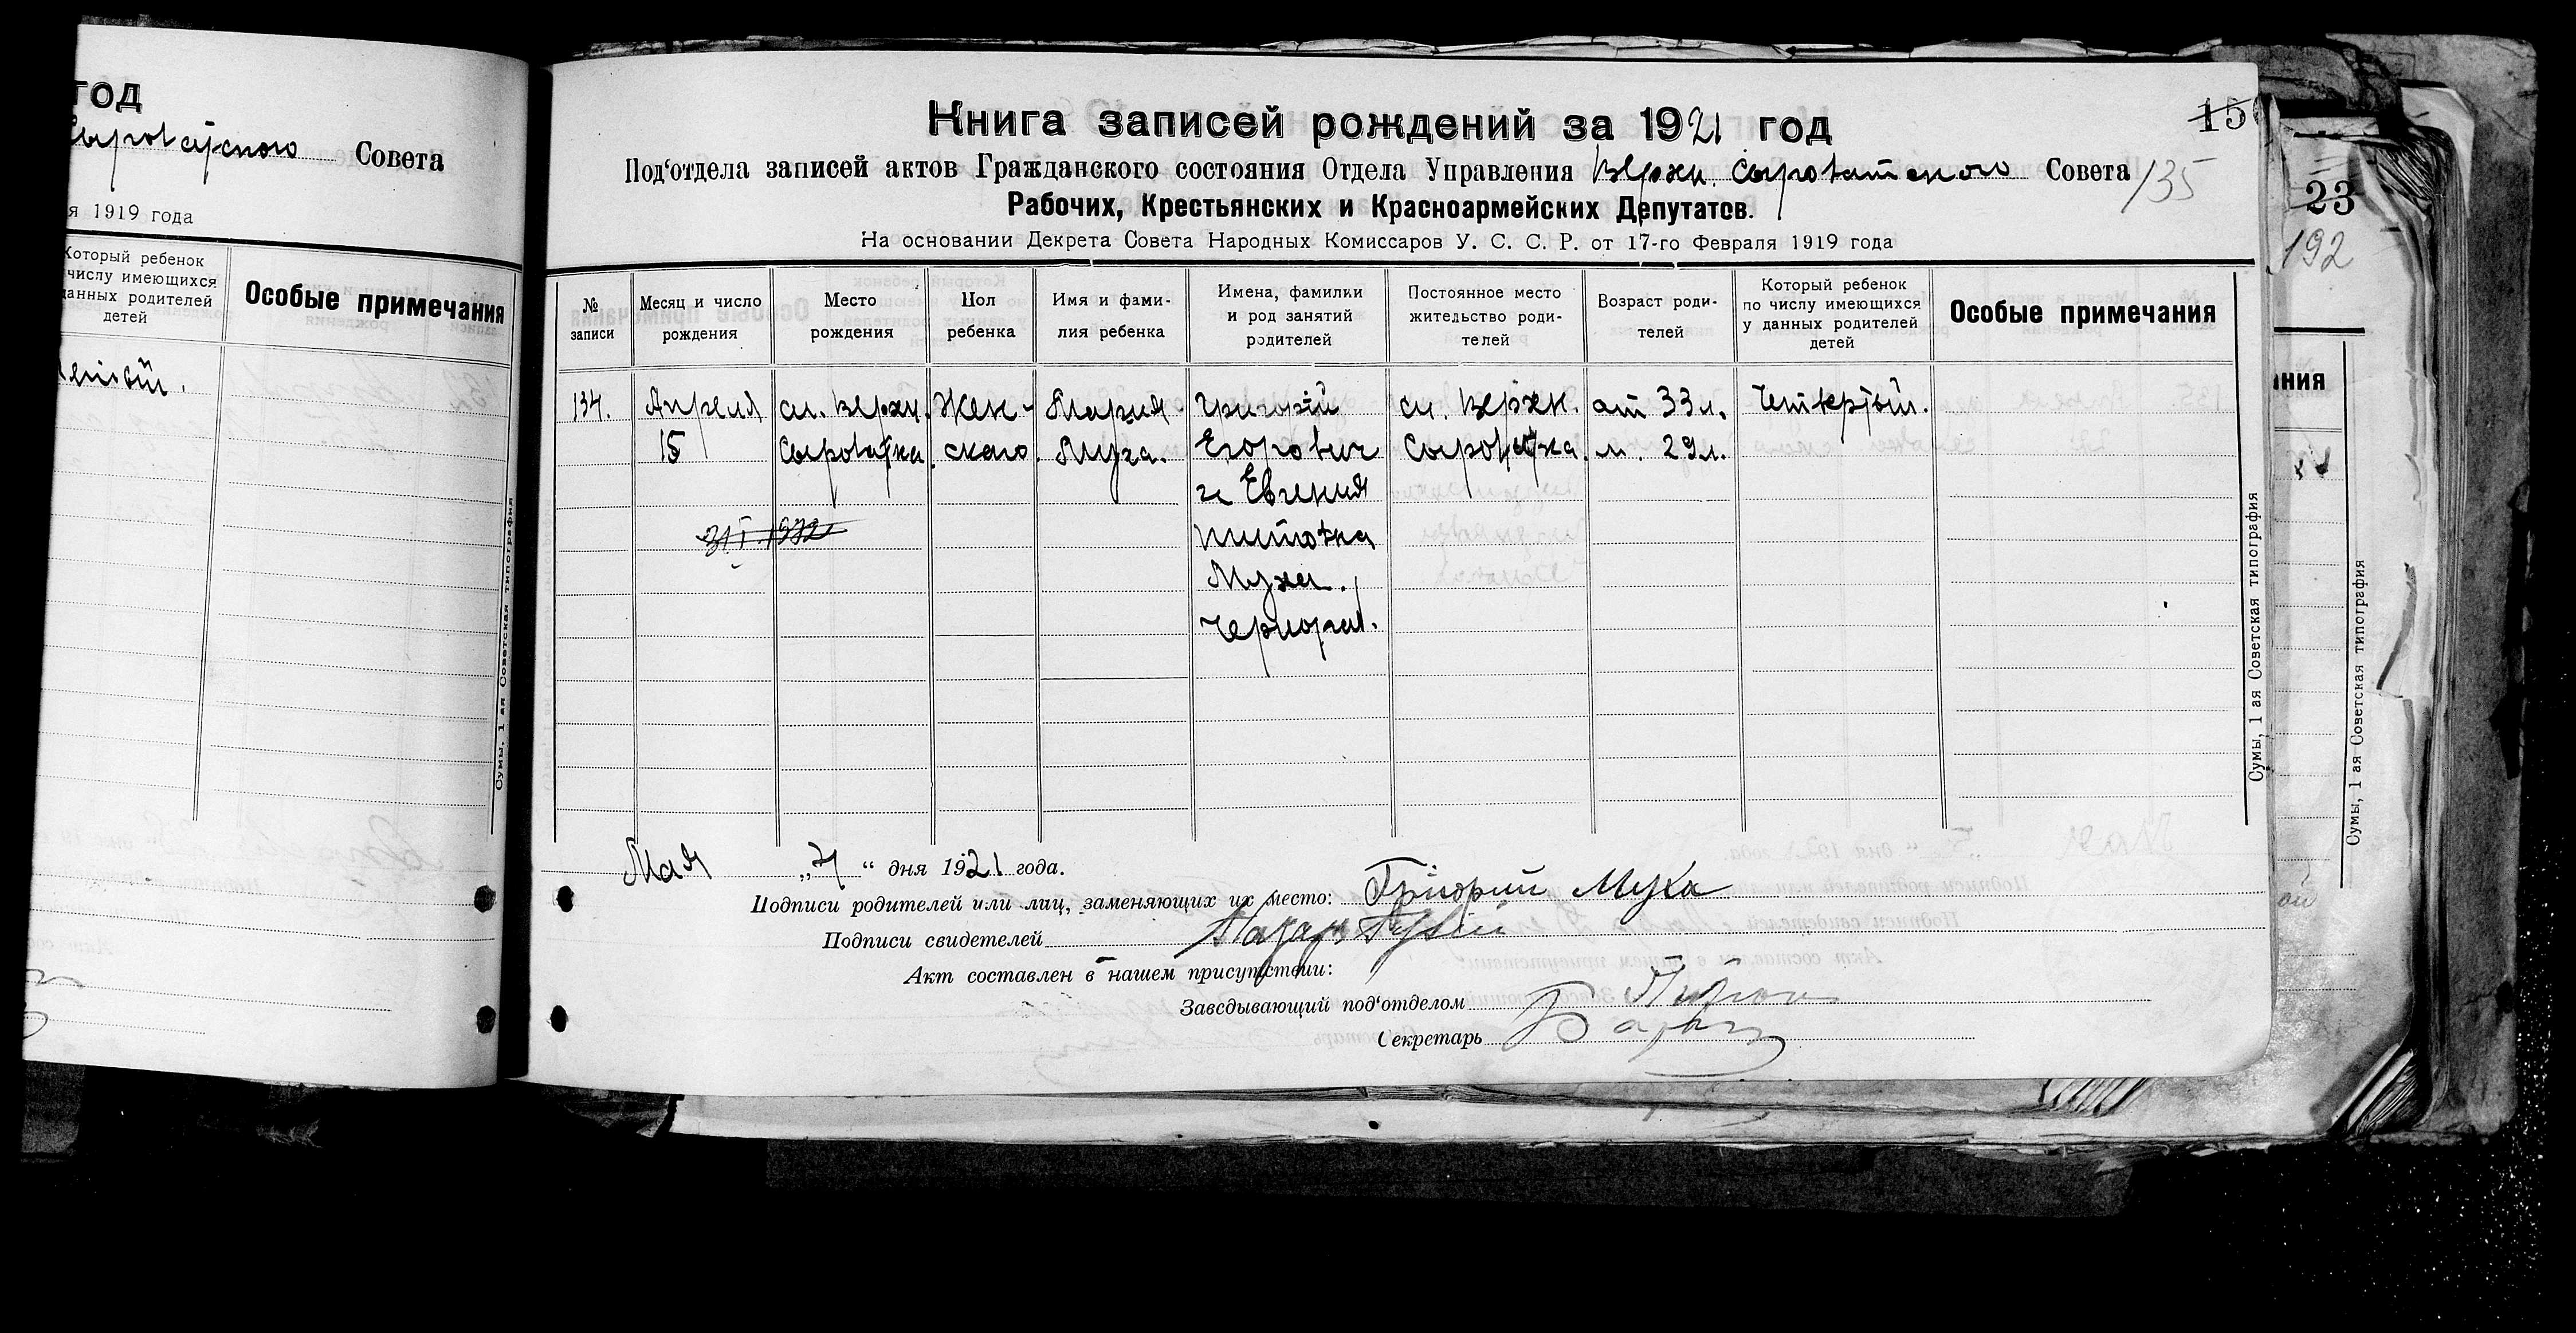 год
Сыроватского Совета
я 1919 года
Который ребенок
числу имеющихся
данных родителей
детей
Особые примечания
Сумы, 1 ая Советская типография
Книга записей рождений за 1921 год
150
Под‘отдела записей актов Гражданского состояния Отдела Управления Верхн. Сыроватского Совета
135
Рабочих, Крестьянских и Красноармейских Депутатов.
На основании Декрета Совета Народных Комиссаров У. С. С. Р. от 17-го Февраля 1919 года
№ записи
Месяц и число рождения
Место рождения
Пол ребенка
Имя и фами-
лия ребенка
Имена, фамилии
и род занятий
родителей
Постоянное место
жительство роди-
телей
Возраст роди-
телей
Который ребенок
по числу имеющихся
у данных родителей
детей
Особые примечания
134.
Апреля
15
сл. Верхн.
Сыроватка.
Жен-
ского.
Мария
Муха.
Григорій
Егорович
и Евгения
Титовна
Мухи.
Чернораб.
сл. Верхн.
Сыроватка.
от 33 л.
м. 29 л.
Четвертый.
31 I. 1972
Мая „4“ дня 1921 года.
Подписи родителей или лиц, заменяющих их место: Григорий Муха
Подписи свидетелей
Акт составлен в нашем присутствии:
Заведывающий под‘отделом
Секретарь
Сумы, 1 ая Советская типография
23
192
ания
Сумы, 1 ая Советская типография